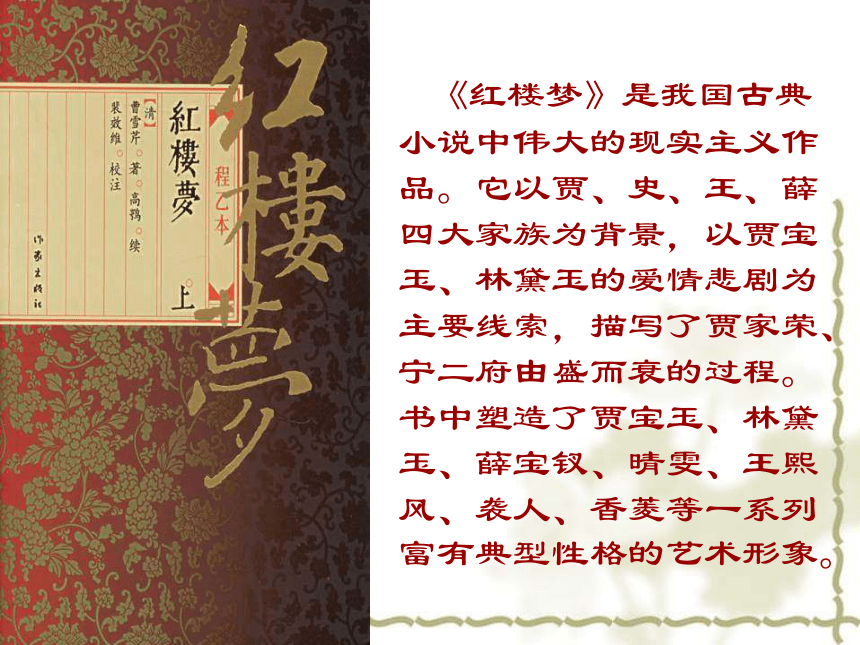 紅樓夢
程乙本
紅樓夢 上
【清】
曹雪芹。著。高鹗。续
裴效维。校注
作家出版社
《红楼梦》是我国古典
小说中伟大的现实主义作
品。它以贾、史、王、薛
四大家族为背景，以贾宝
玉、林黛玉的爱情悲剧为
主要线索，描写了贾家荣、
宁二府由盛而衰的过程。
书中塑造了贾宝玉、林黛
玉、薛宝钗、晴雯、王熙
风、袭人、香菱等一系列
富有典型性格的艺术形象。